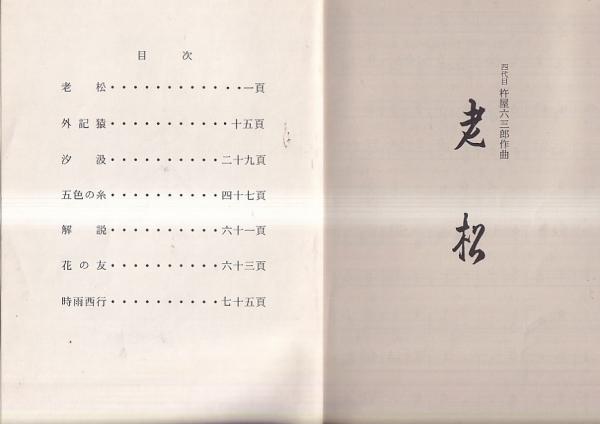 目次
老松・・・・・・・・・・・・一頁
外記猿・・・・・・・・・・・十五頁
汐汲・・・・・・・・・・二十九頁
五色の糸・・・・・・・・・・四十七頁
解説・・・・・・・・・・六十一頁
花の友・・・・・・・・・・六十三頁
時雨西行・・・・・・・・・・七十五頁
四代目 杵屋六三郎作曲
老松